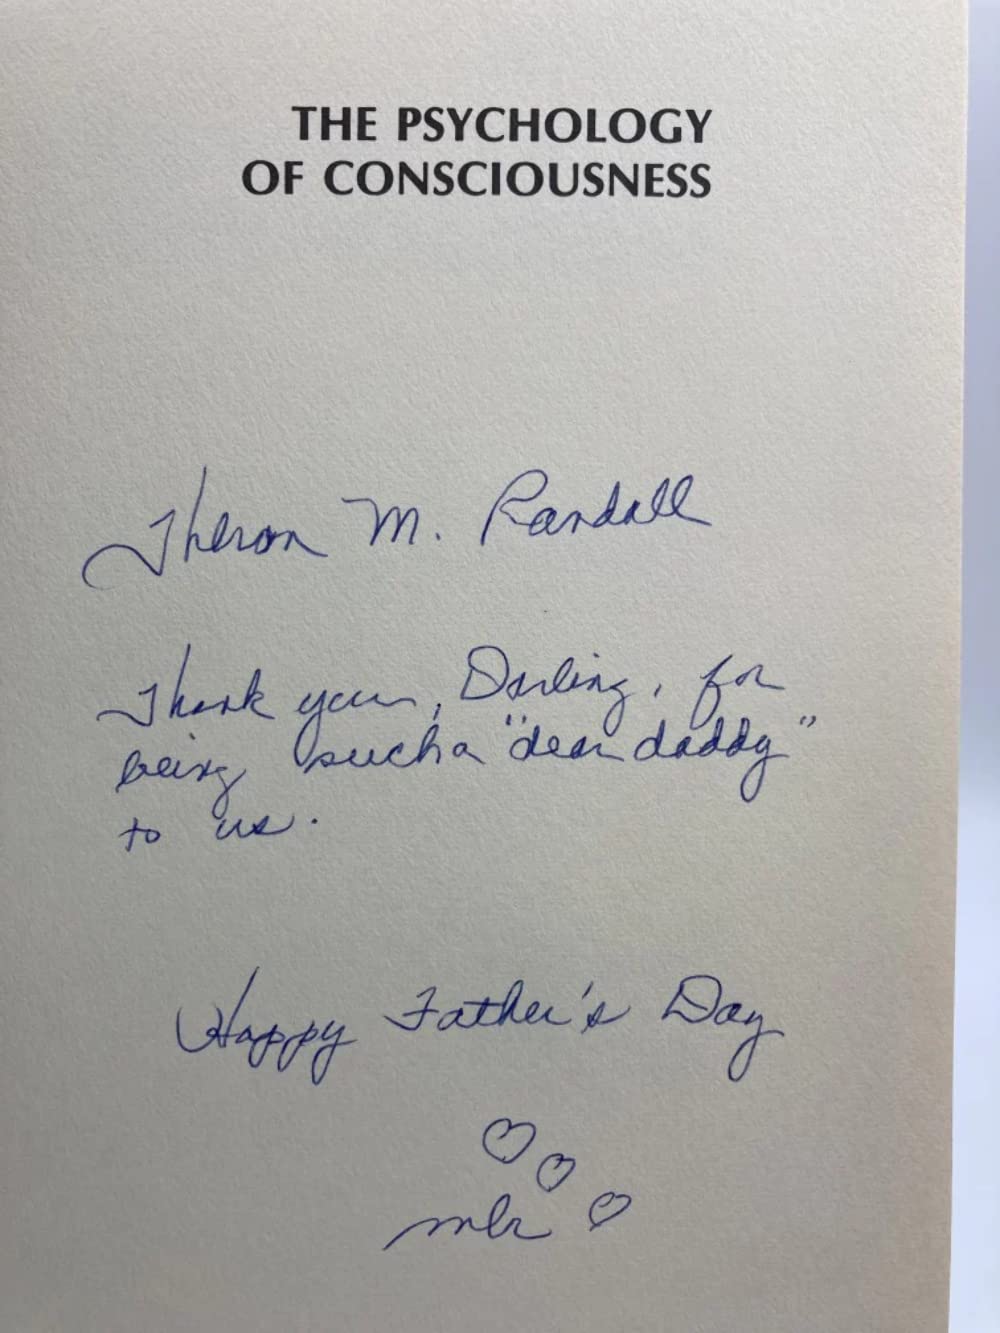 THE PSYCHOLOGY
OF CONSCIOUSNESS
Theron M. Randall
Thank you, Darling, for
being such a "dear daddy"
to us.
Happy Father's Day
mlr